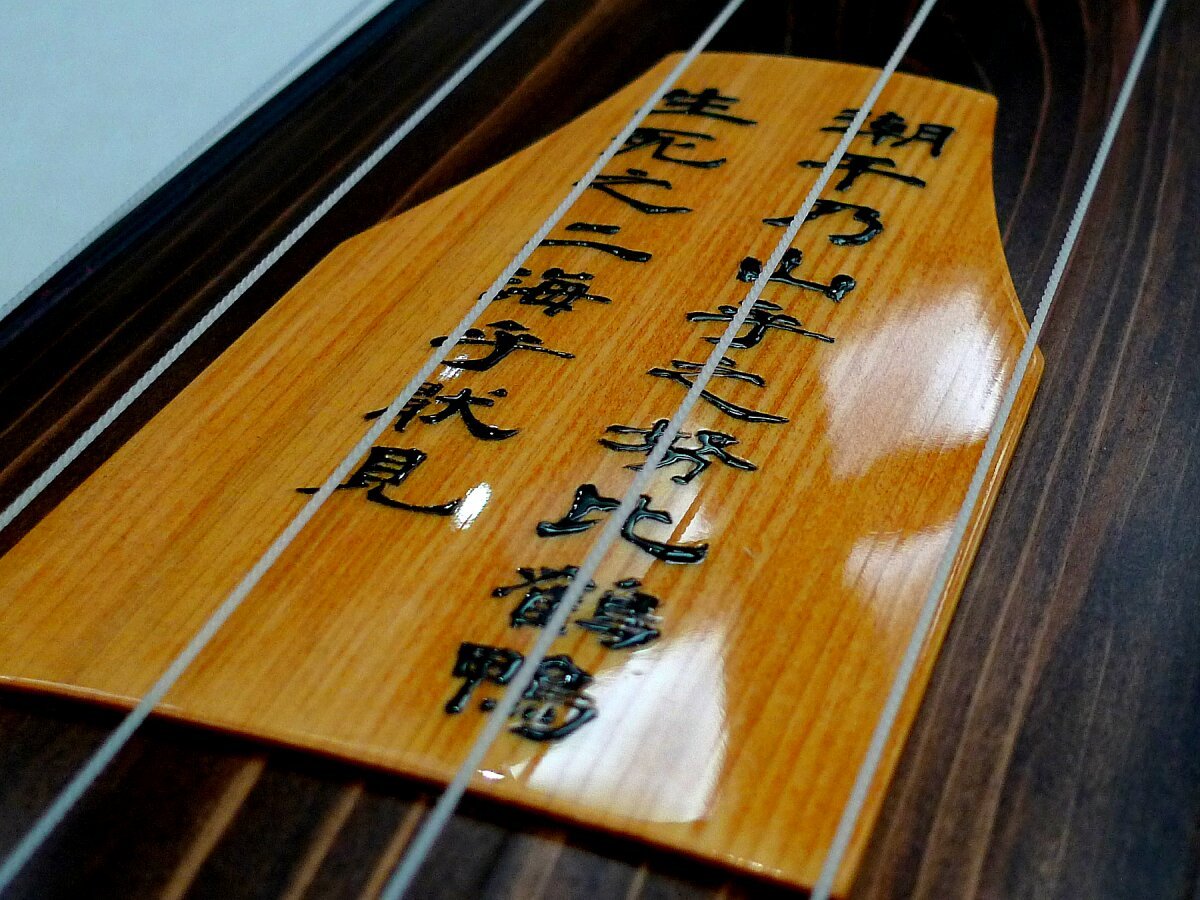 生死之二海乎猒見
潮干乃山乎之努比鶴鴨